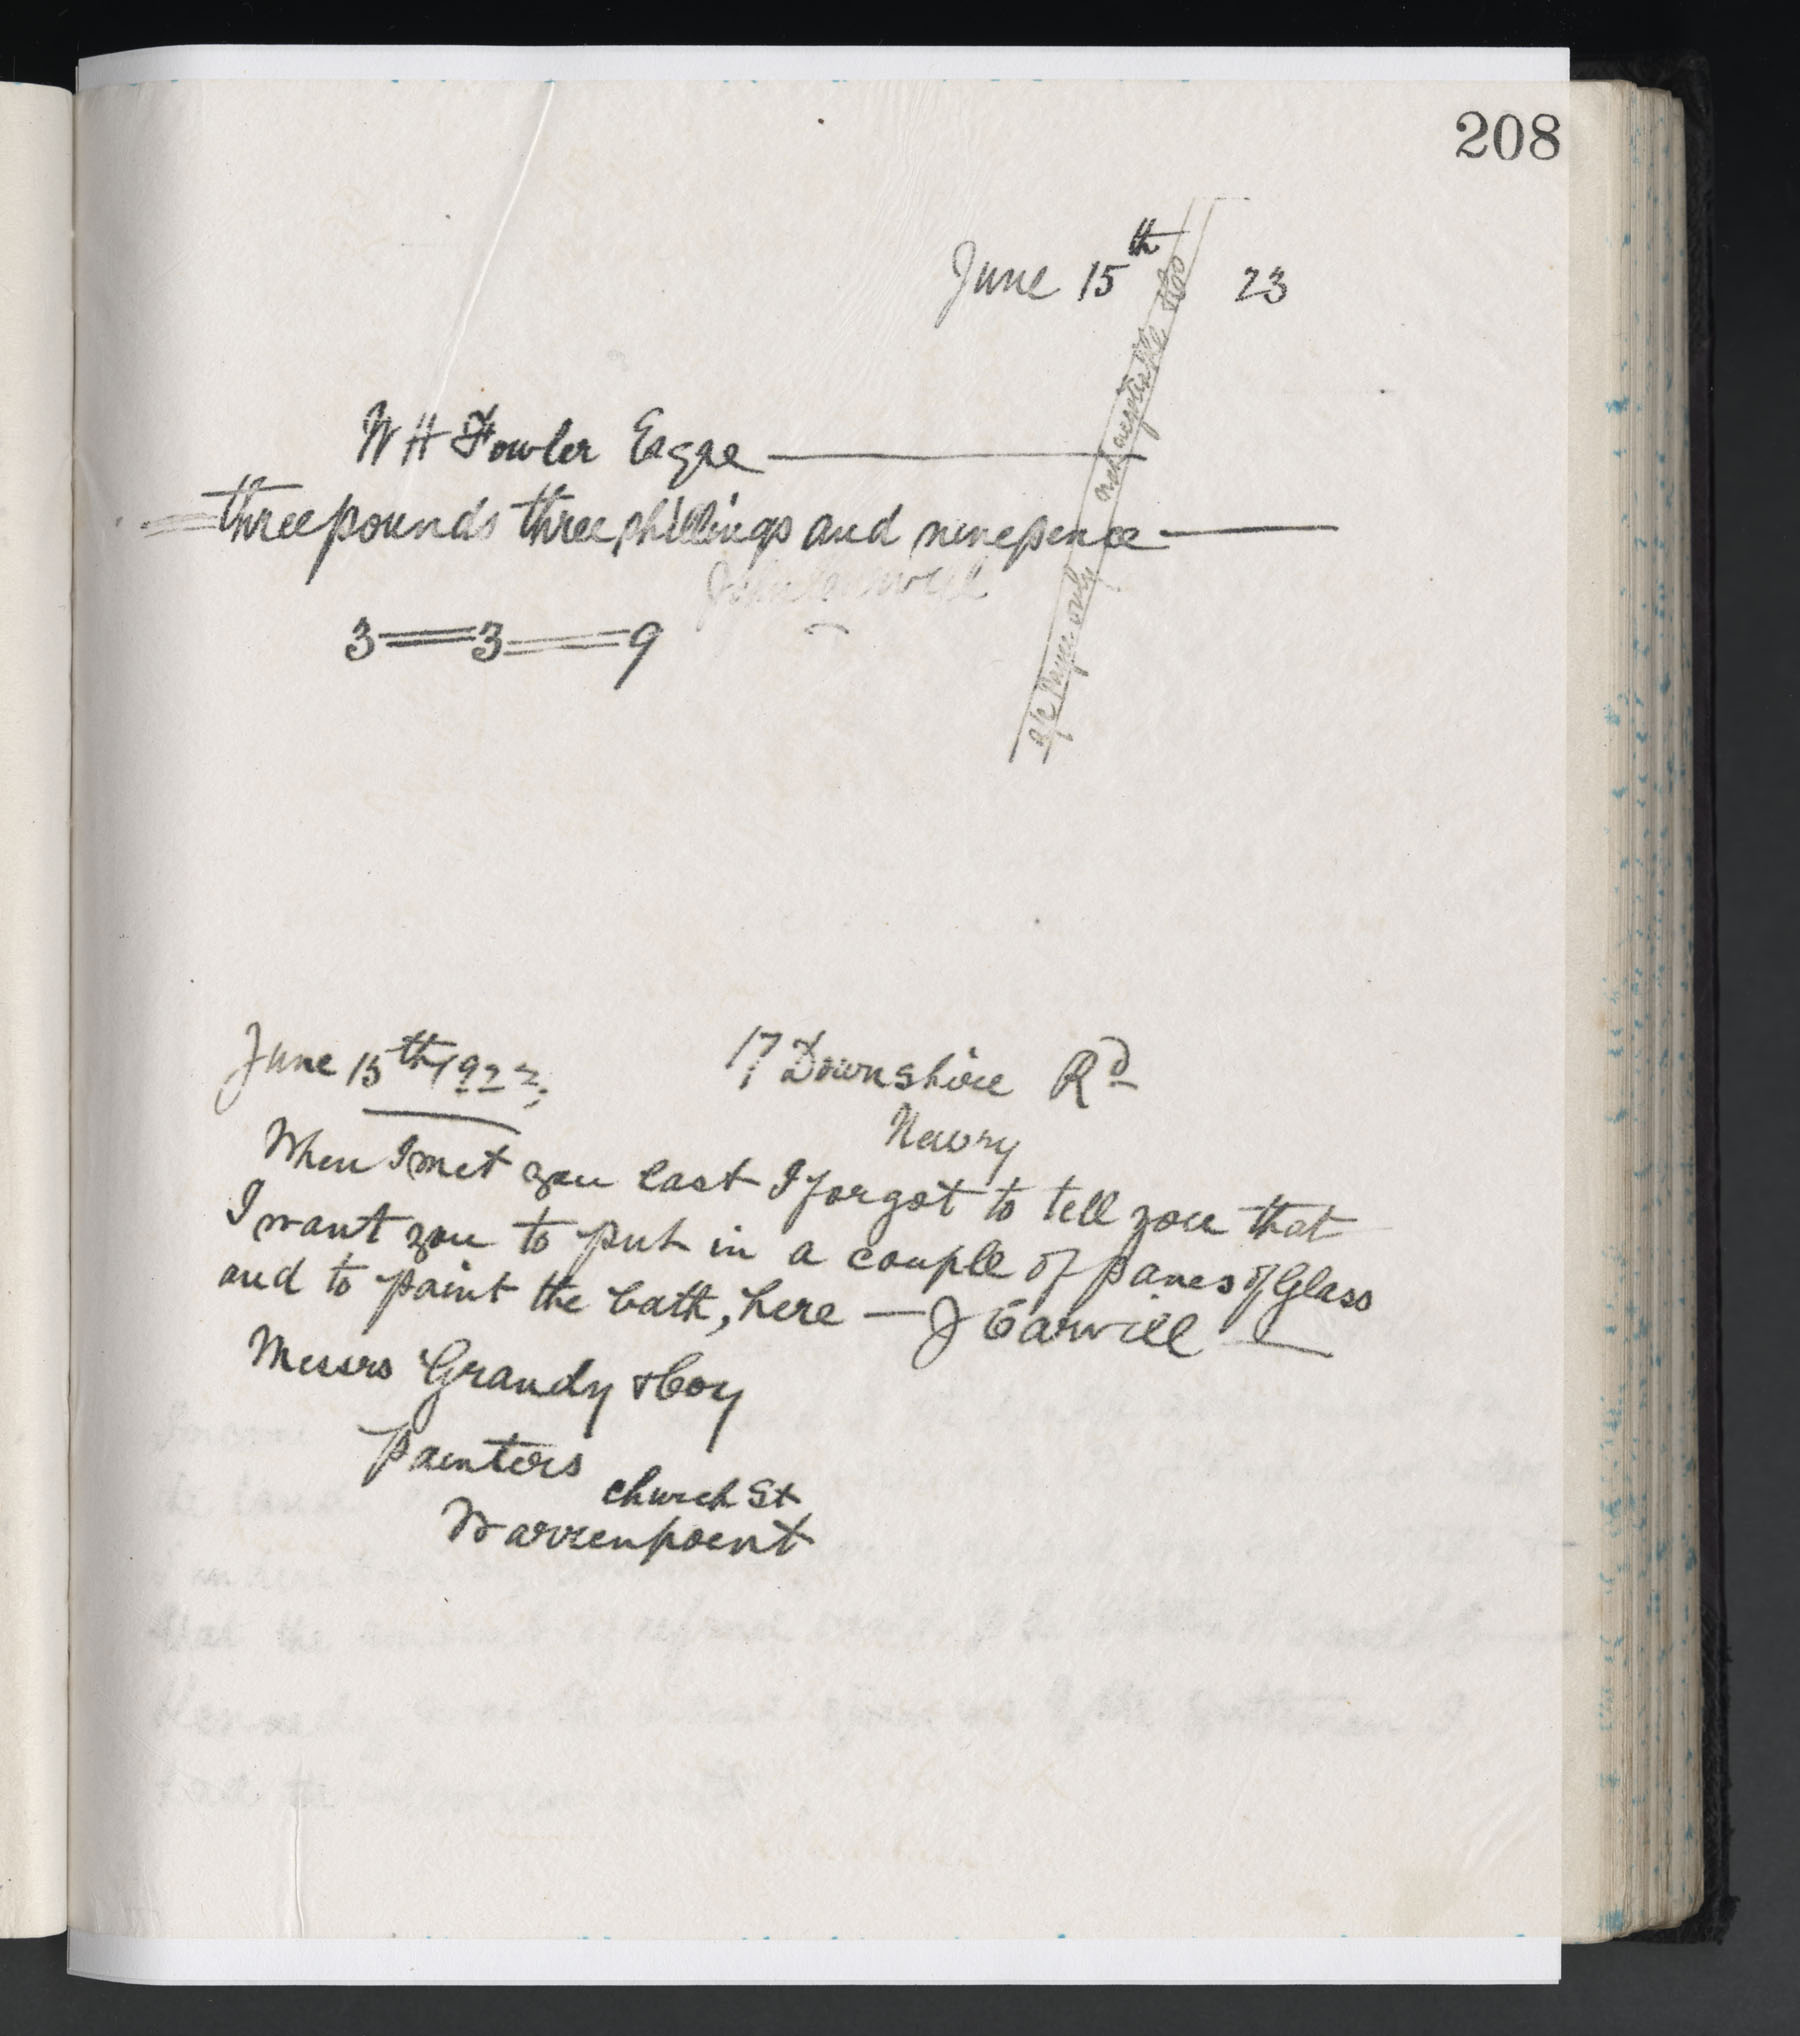 208
June 15th 23
not negotiable
a/c Payee only
W H Fowler Esqre
three pounds three shillings and ninepence
John Carvill
3 = 3 = 9
June 15th 1923,
17 Downshire Rd
Newry
When I met you last I forgot to tell you that
I want you to put in a couple of panes of Glass
and to paint the bath, here — J Carvill —
Messrs Grandy & Coy
Painters
Church St
Warrenpoint